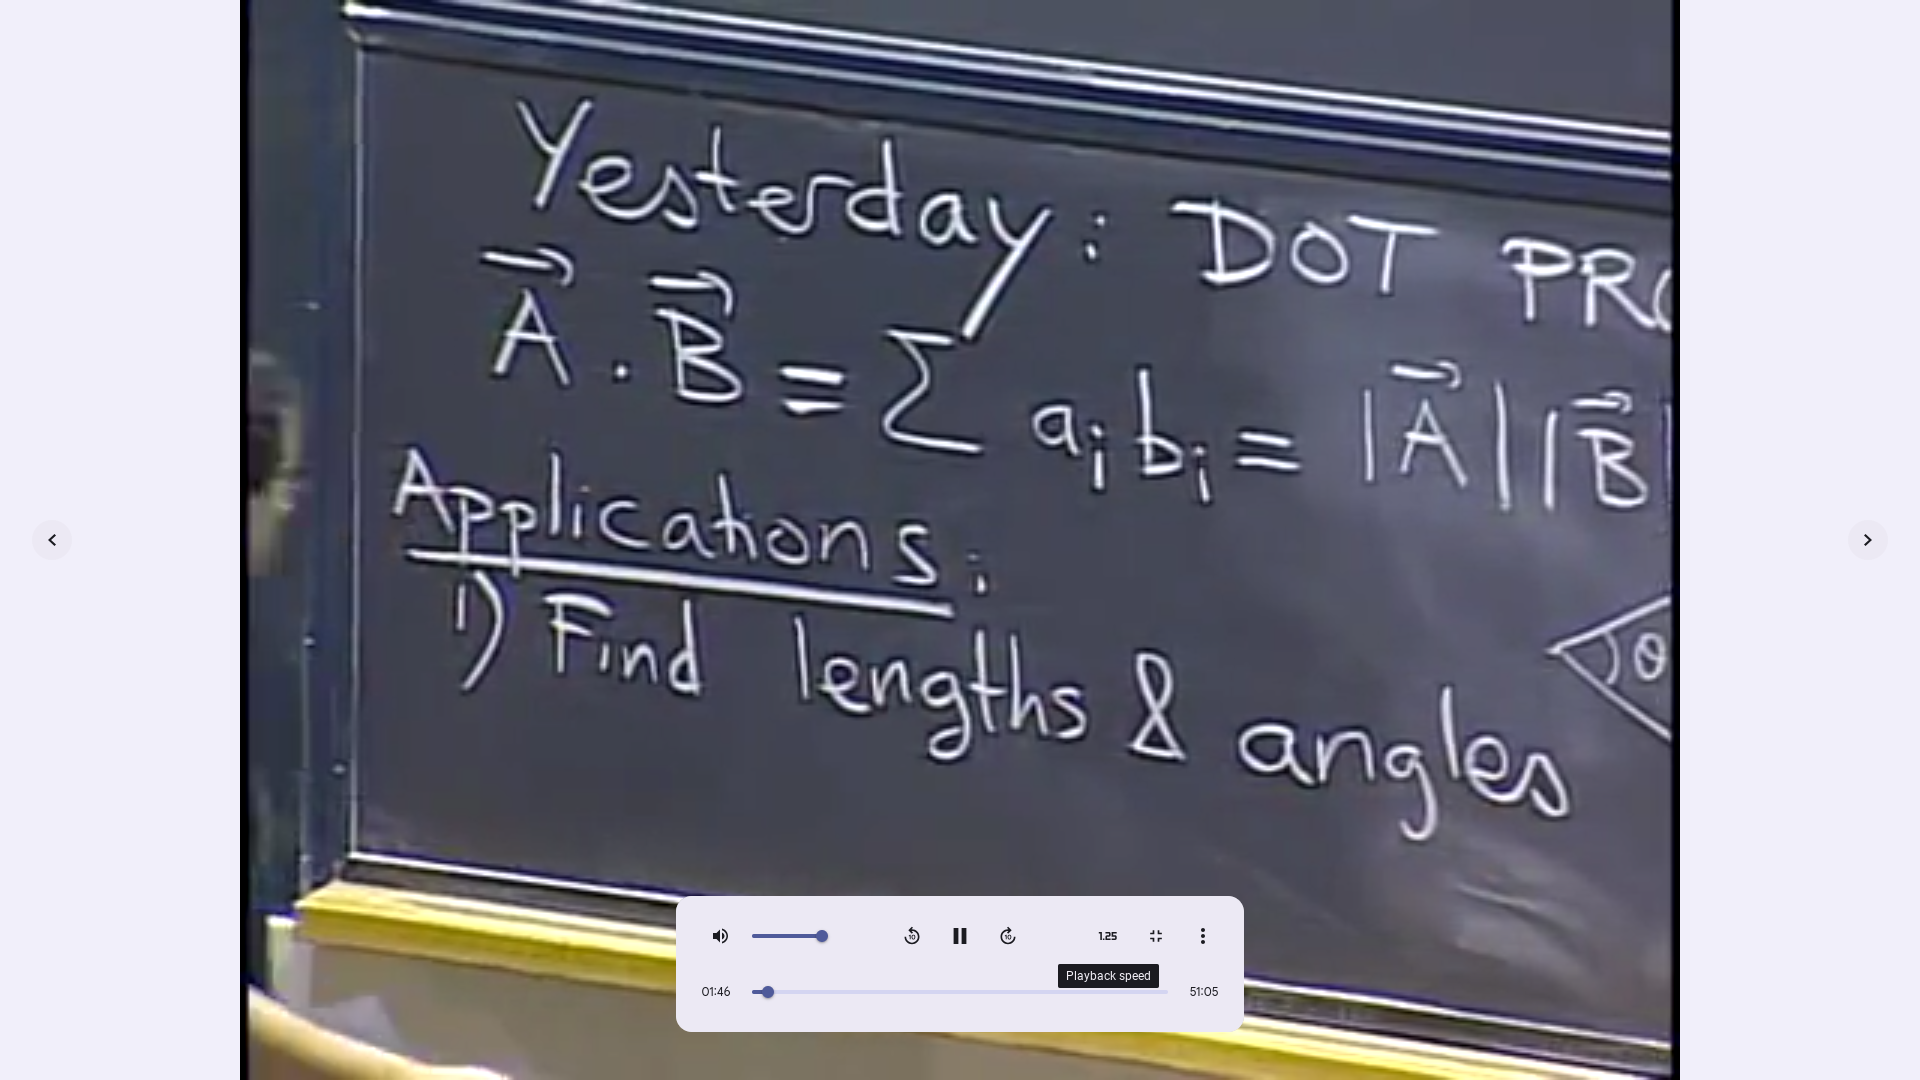 Yesterday: DOT PRO
A⃗ · B⃗ = Σ aᵢ bᵢ = |A⃗| |B⃗|
Applications:
θ
1) Find lengths & angles
10
10
1.25
Playback speed
01:46
51:05